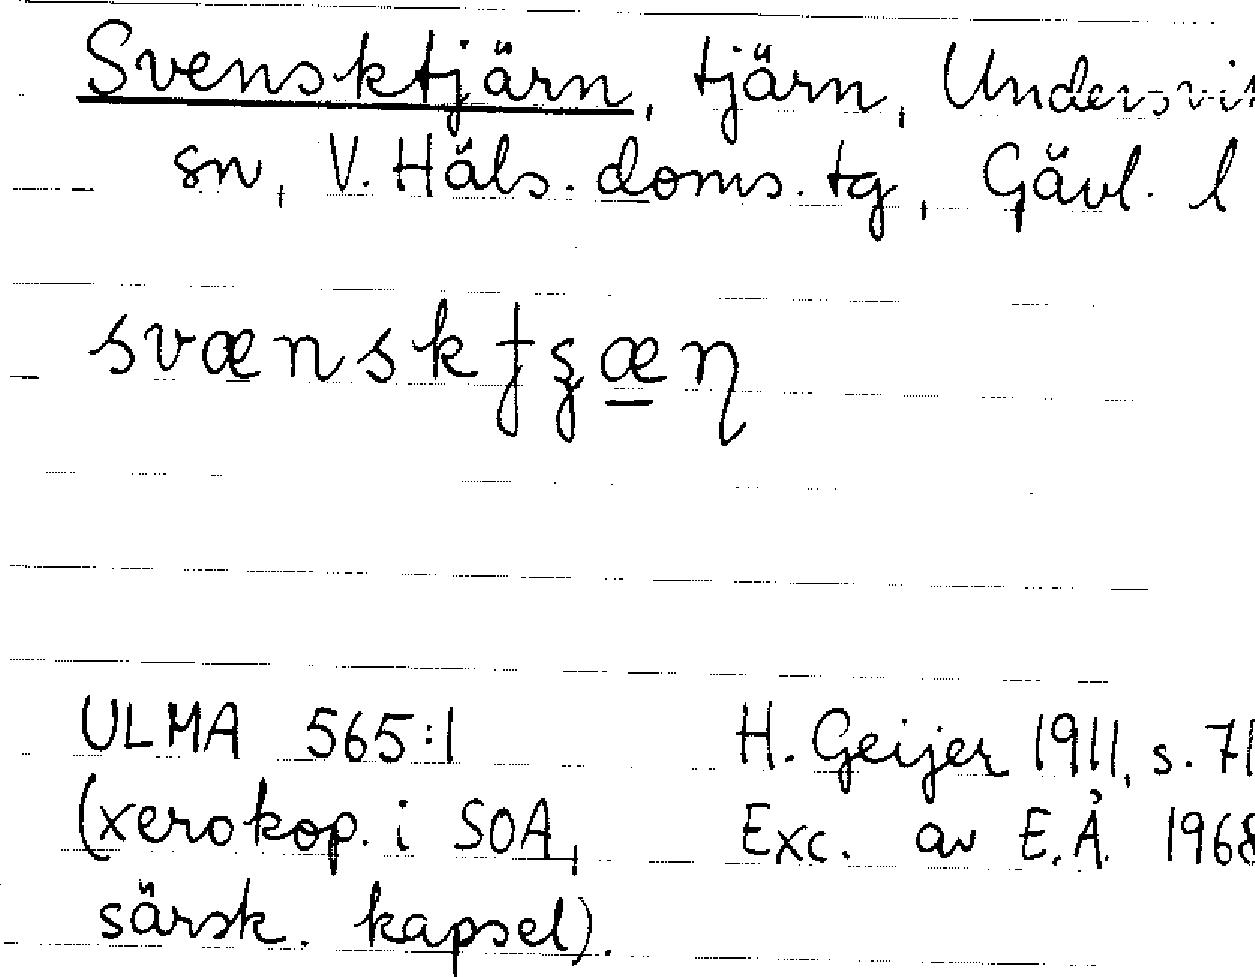 Svensktjärn, tjärn, Undersvik
sn, V. Häls. doms. tg, Gävl. l
svænskʈʂæɳ
ULMA 565:1 H. Geijer 1911, s. 71
(xerokop. i SOA, Exc. av E.Å. 1968
särsk. kapsel).